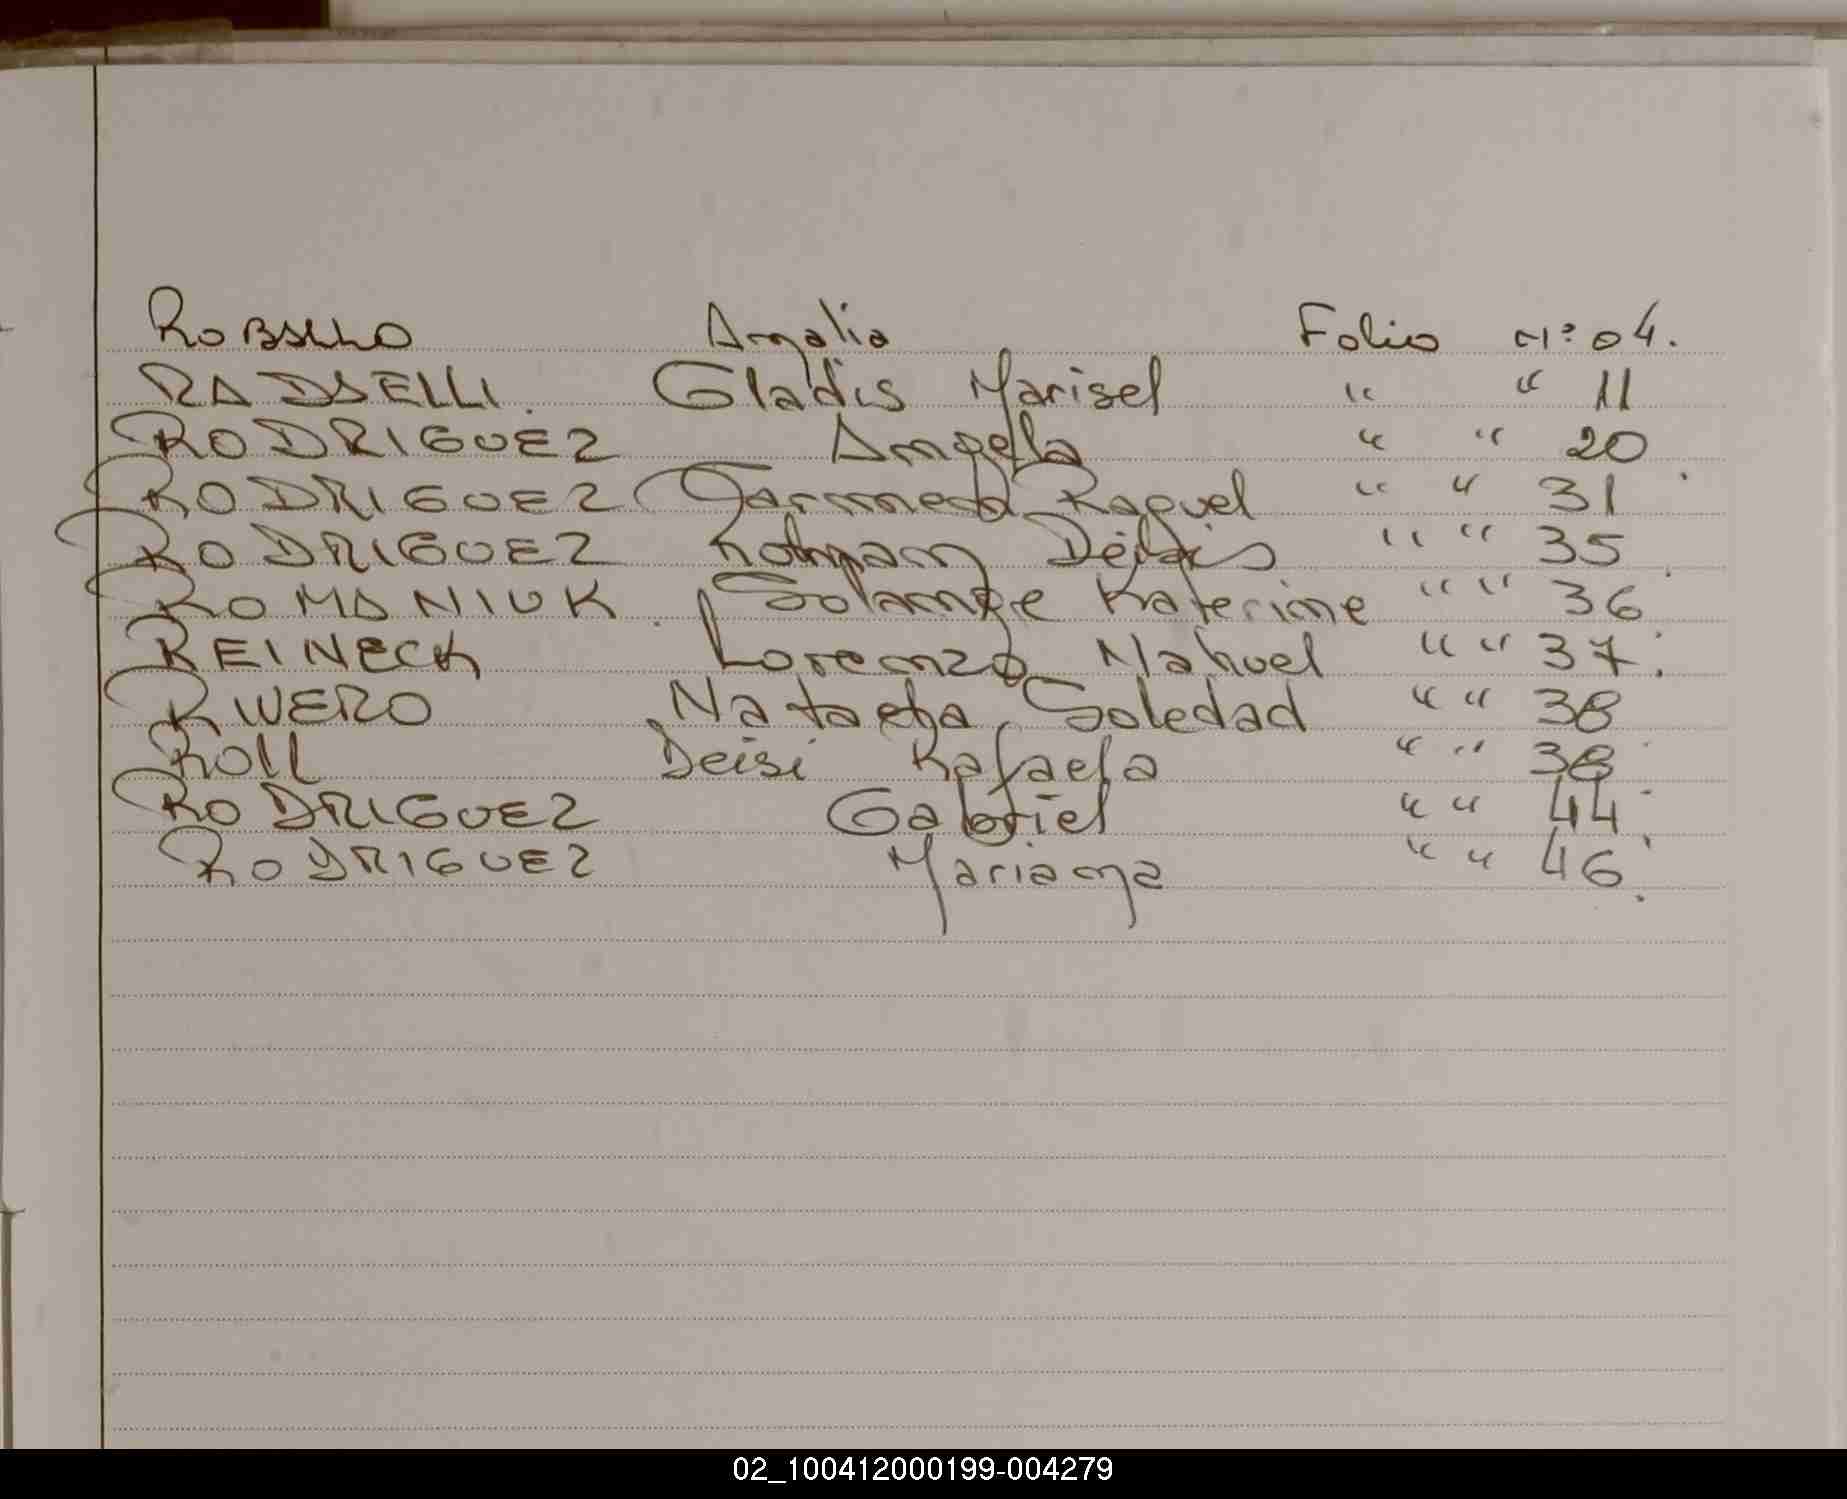 ROBELLO Amalia Folio N° 04.
RADAELLI. Gladis Marisel " " 11
RODRIGUEZ Angela " " 20
RODRIGUEZ Carmen Raquel " " 31
RODRIGUEZ " " 35
ROMANIUK Solange Katerine " " 36
REINECK Lorenzo Nahuel " " 37
RIVERO Natacha Soledad " " 38
ROLL Deisi Rafaela " " 38
RODRIGUEZ Gabriel " " 44
RODRIGUEZ Mariana " " 46
02_100412000199-004279